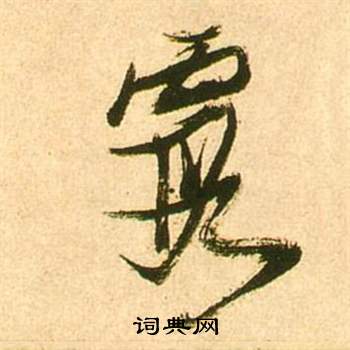 霞
词典网